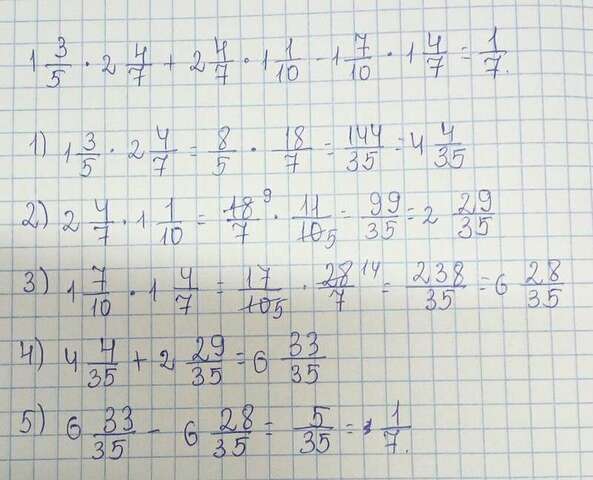 1 3/5 · 2 4/7 + 2 4/7 · 1 1/10 - 1 7/10 · 1 4/7 = 1/7.
1) 1 3/5 · 2 4/7 = 8/5 · 18/7 = 144/35 = 4 4/35
2) 2 4/7 · 1 1/10 = 18 9/7 · 11/10 5 = 99/35 = 2 29/35
3) 1 7/10 · 1 4/7 = 17/10 5 · 28 14/7 = 238/35 = 6 28/35
4) 4 4/35 + 2 29/35 = 6 33/35
5) 6 33/35 - 6 28/35 = 5/35 = 1/7.